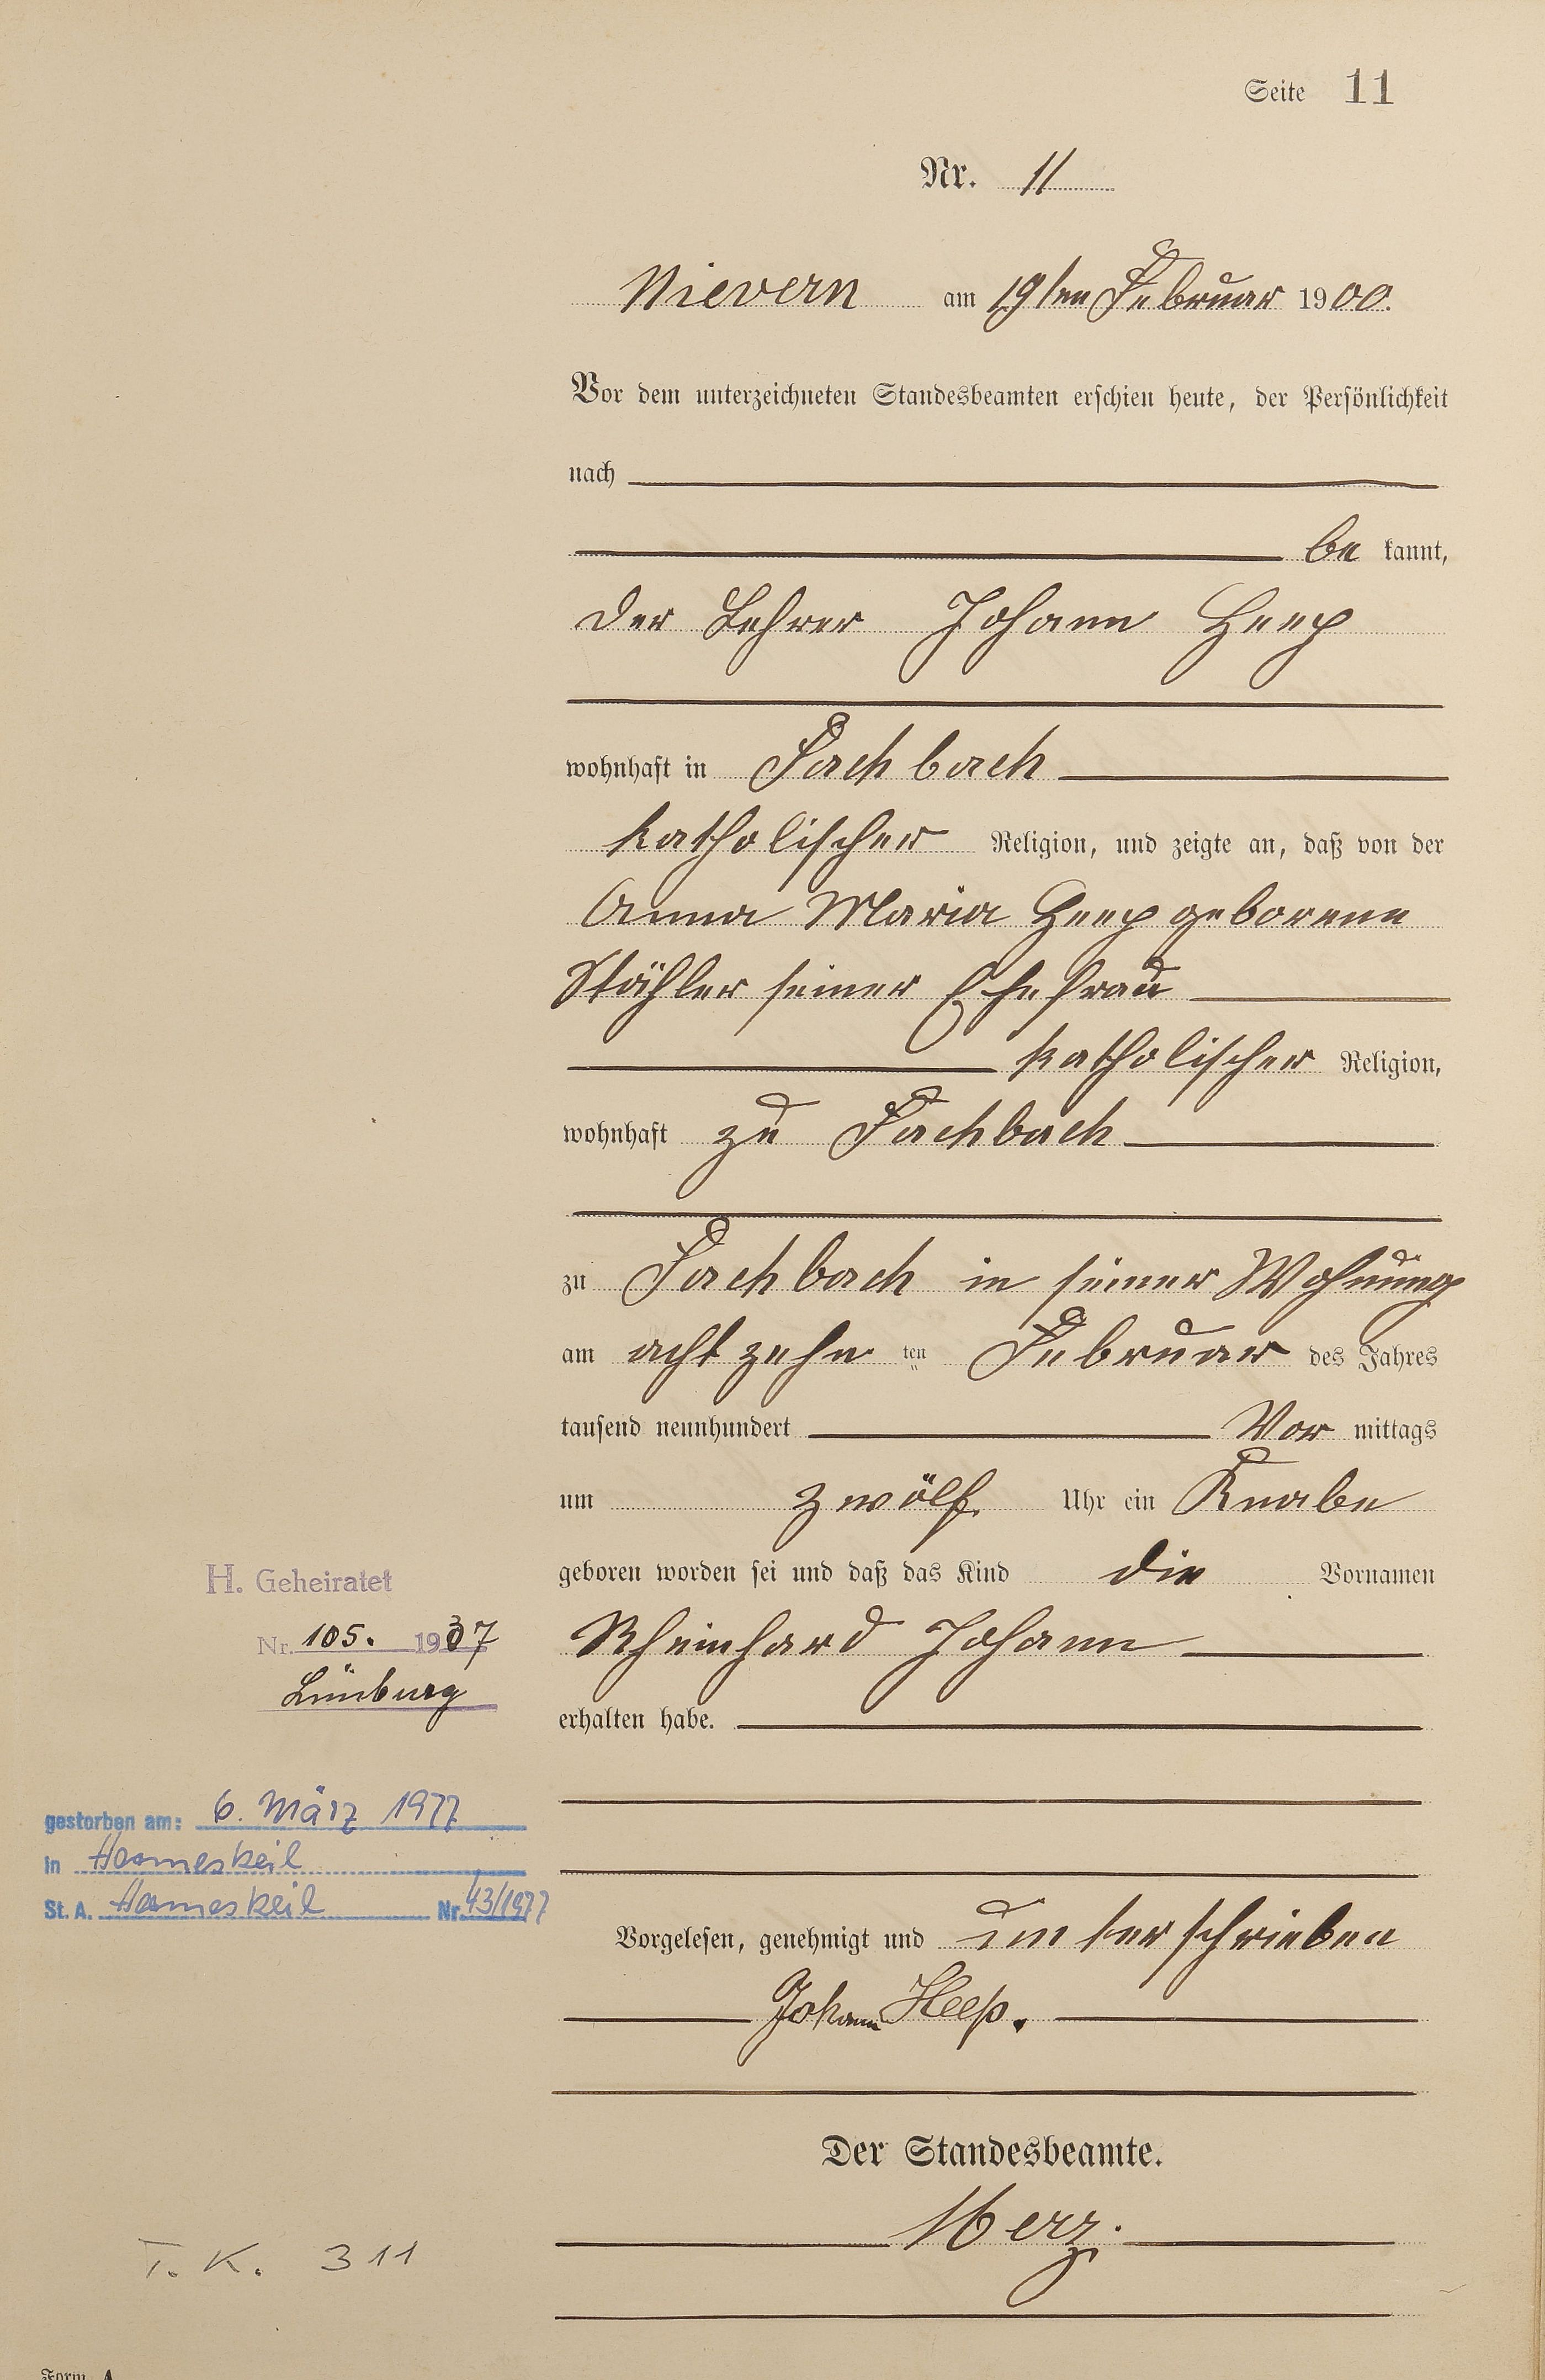 Seite 11
Nr. 11
Nievern am 19ten Februar 1900.
Vor dem unterzeichneten Standesbeamten erschien heute, der Persönlichkeit
nach
be kannt,
der Lehrer Johann Heep
wohnhaft in Fachbach
katholischer Religion, und zeigte an, daß von der
Anna Maria Heep geborene
Stähler seiner Ehefrau
katholischer Religion,
wohnhaft zu Fachbach
zu Fachbach in seiner Wohnung
am acht zehn ten Februar des Jahres
tausend neunhundert Vor mittags
um zwölf Uhr ein Knabe
geboren worden sei und daß das Kind die Vornamen
Rheinhard Johann
erhalten habe.
H. Geheiratet
Nr. 105. 1937
Limburg
gestorben am: 6. März 1977
in Hermeskeil
St. A. Hermeskeil Nr. 43/1977
Vorgelesen, genehmigt und unterschrieben
Johann Heep.
Der Standesbeamte.
Herz.
T. K. 311
Form. A